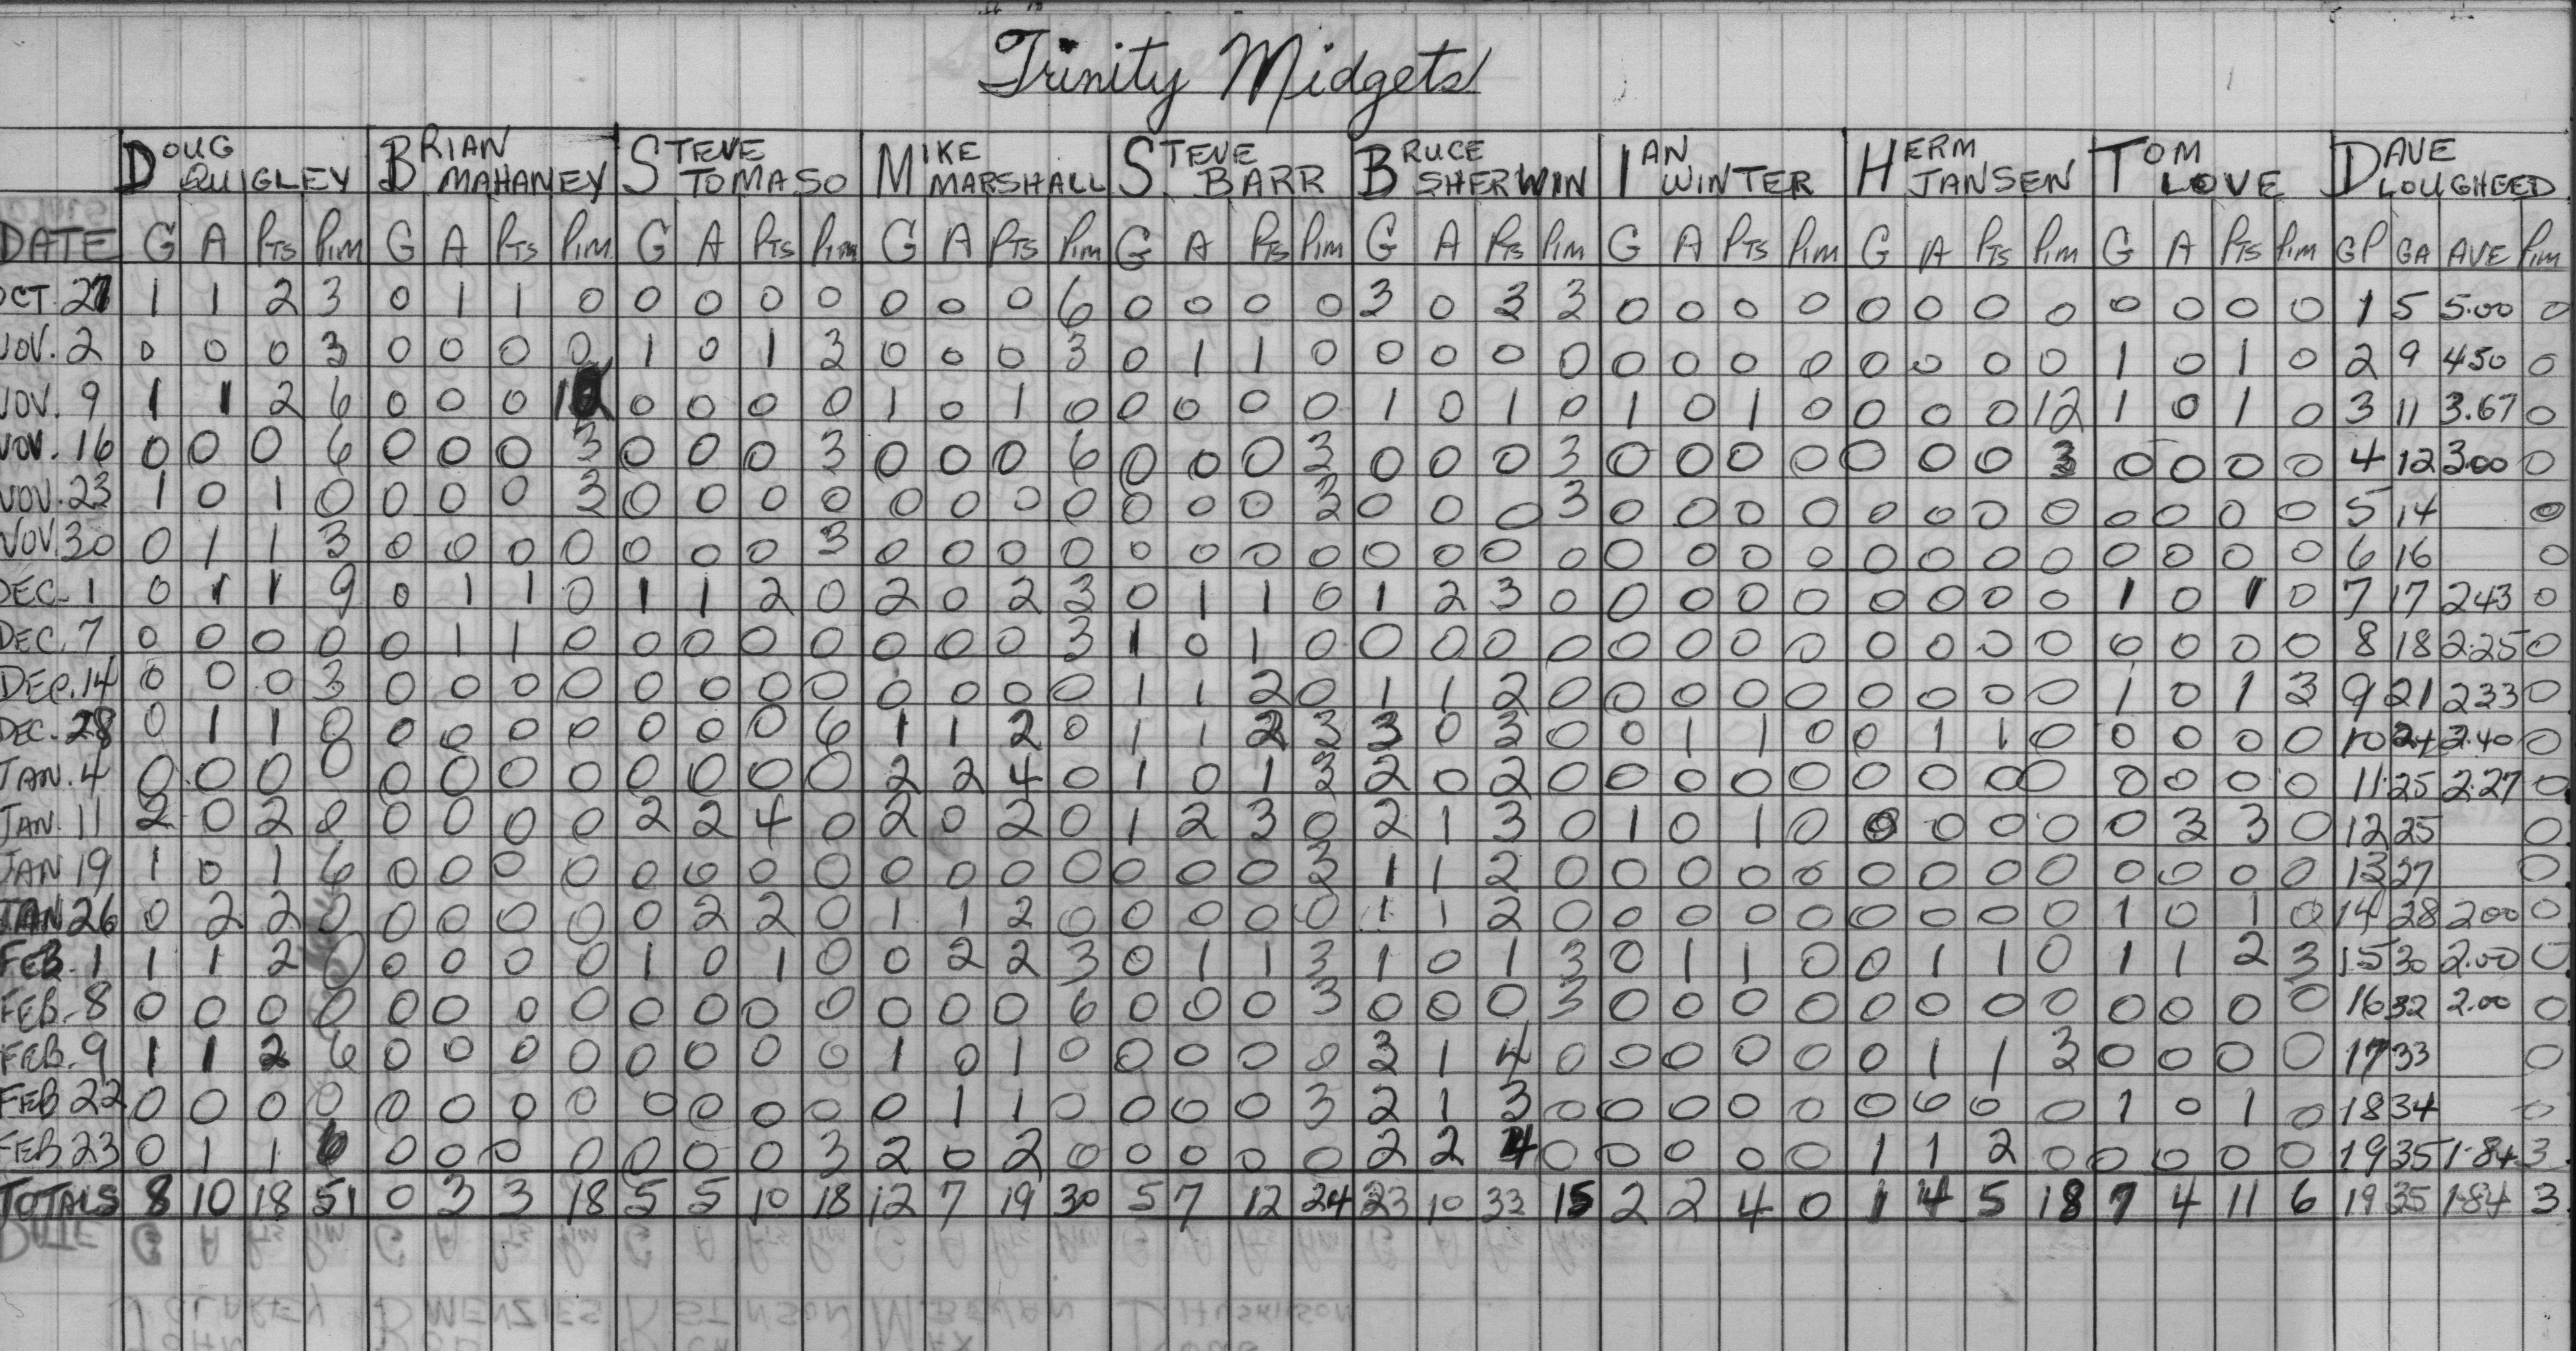 Trinity Midgets
DOUG QUIGLEY BRIAN MAHANEY STEVE TOMASO MIKE MARSHALL STEVE BARR BRUCE SHERWIN IAN WINTER HERM JANSEN TOM LOVE DAVE LOUGHEED
DATE G A PTS PIM G A PTS PIM G A PTS PIM G A PTS PIM G A PTS PIM G A PTS PIM G A PTS PIM G A PTS PIM G A PTS PIM GP GA AVE PIM
OCT. 27 1 1 2 3 0 1 1 0 0 0 0 0 0 0 0 6 0 0 0 0 3 0 3 3 0 0 0 0 0 0 0 0 0 0 0 0 1 5 5.00 0
NOV. 2 0 0 0 3 0 0 0 0 1 0 1 3 0 0 0 3 0 1 1 0 0 0 0 0 0 0 0 0 0 0 0 0 1 0 1 0 2 9 4.50 0
NOV. 9 1 1 2 6 0 0 0 12 0 0 0 0 1 0 1 0 0 0 0 0 1 0 1 0 1 0 1 0 0 0 0 12 1 0 1 0 3 11 3.67 0
NOV. 16 0 0 0 6 0 0 0 3 0 0 0 3 0 0 0 6 0 0 0 3 0 0 0 3 0 0 0 0 0 0 0 3 0 0 0 0 4 12 3.00 0
NOV. 23 1 0 1 0 0 0 0 3 0 0 0 0 0 0 0 0 0 0 0 3 0 0 0 3 0 0 0 0 0 0 0 0 0 0 0 0 5 14 0
NOV. 30 0 1 1 3 0 0 0 0 0 0 0 3 0 0 0 0 0 0 0 0 0 0 0 0 0 0 0 0 0 0 0 0 0 0 0 0 6 16 0
DEC. 1 0 1 1 9 0 1 1 0 1 1 2 0 2 0 2 3 0 1 1 0 1 2 3 0 0 0 0 0 0 0 0 0 1 0 1 0 7 17 2.43 0
DEC. 7 0 0 0 0 0 1 1 0 0 0 0 0 0 0 0 3 1 0 1 0 0 0 0 0 0 0 0 0 0 0 0 0 0 0 0 0 8 18 2.25 0
DEC. 14 0 0 0 3 0 0 0 0 0 0 0 0 0 0 0 0 1 1 2 0 1 1 2 0 0 0 0 0 0 0 0 0 1 0 1 3 9 21 2.33 0
DEC. 28 0 1 1 0 0 0 0 0 0 0 0 6 1 1 2 0 1 1 2 3 3 0 3 0 0 1 1 0 0 1 1 0 0 0 0 0 10 24 2.40 0
JAN. 4 0 0 0 0 0 0 0 0 0 0 0 0 2 2 4 0 1 0 1 3 2 0 2 0 0 0 0 0 0 0 0 0 0 0 0 0 11 25 2.27 0
JAN. 11 2 0 2 0 0 0 0 0 2 2 4 0 2 0 2 0 1 2 3 0 2 1 3 0 1 0 1 0 0 0 0 0 0 3 3 0 12 25 0
JAN 19 1 0 1 6 0 0 0 0 0 0 0 0 0 0 0 0 0 0 0 3 1 1 2 0 0 0 0 0 0 0 0 0 0 0 0 0 13 27 0
JAN 26 0 2 2 0 0 0 0 0 0 2 2 0 1 1 2 0 0 0 0 0 1 1 2 0 0 0 0 0 0 0 0 0 1 0 1 0 14 28 2.00 0
FEB. 1 1 1 2 0 0 0 0 0 1 0 1 0 0 2 2 3 0 1 1 3 1 0 1 3 0 1 1 0 0 1 1 0 1 1 2 3 15 30 2.00 0
FEB. 8 0 0 0 0 0 0 0 0 0 0 0 0 0 0 0 6 0 0 0 3 0 0 0 3 0 0 0 0 0 0 0 0 0 0 0 0 16 32 2.00 0
FEB. 9 1 1 2 6 0 0 0 0 0 0 0 0 1 0 1 0 0 0 0 0 3 1 4 0 0 0 0 0 0 1 1 3 0 0 0 0 17 33 0
FEB 22 0 0 0 0 0 0 0 0 0 0 0 0 0 1 1 0 0 0 0 3 2 1 3 0 0 0 0 0 0 0 0 0 1 0 1 0 18 34 0
FEB 23 0 1 1 6 0 0 0 0 0 0 0 3 2 0 2 0 0 0 0 0 2 2 4 0 0 0 0 0 1 1 2 0 0 0 0 0 19 35 1.84 3
TOTALS 8 10 18 51 0 3 3 18 5 5 10 18 12 7 19 30 5 7 12 24 23 10 33 15 2 2 4 0 1 4 5 18 7 4 11 6 19 35 1.84 3